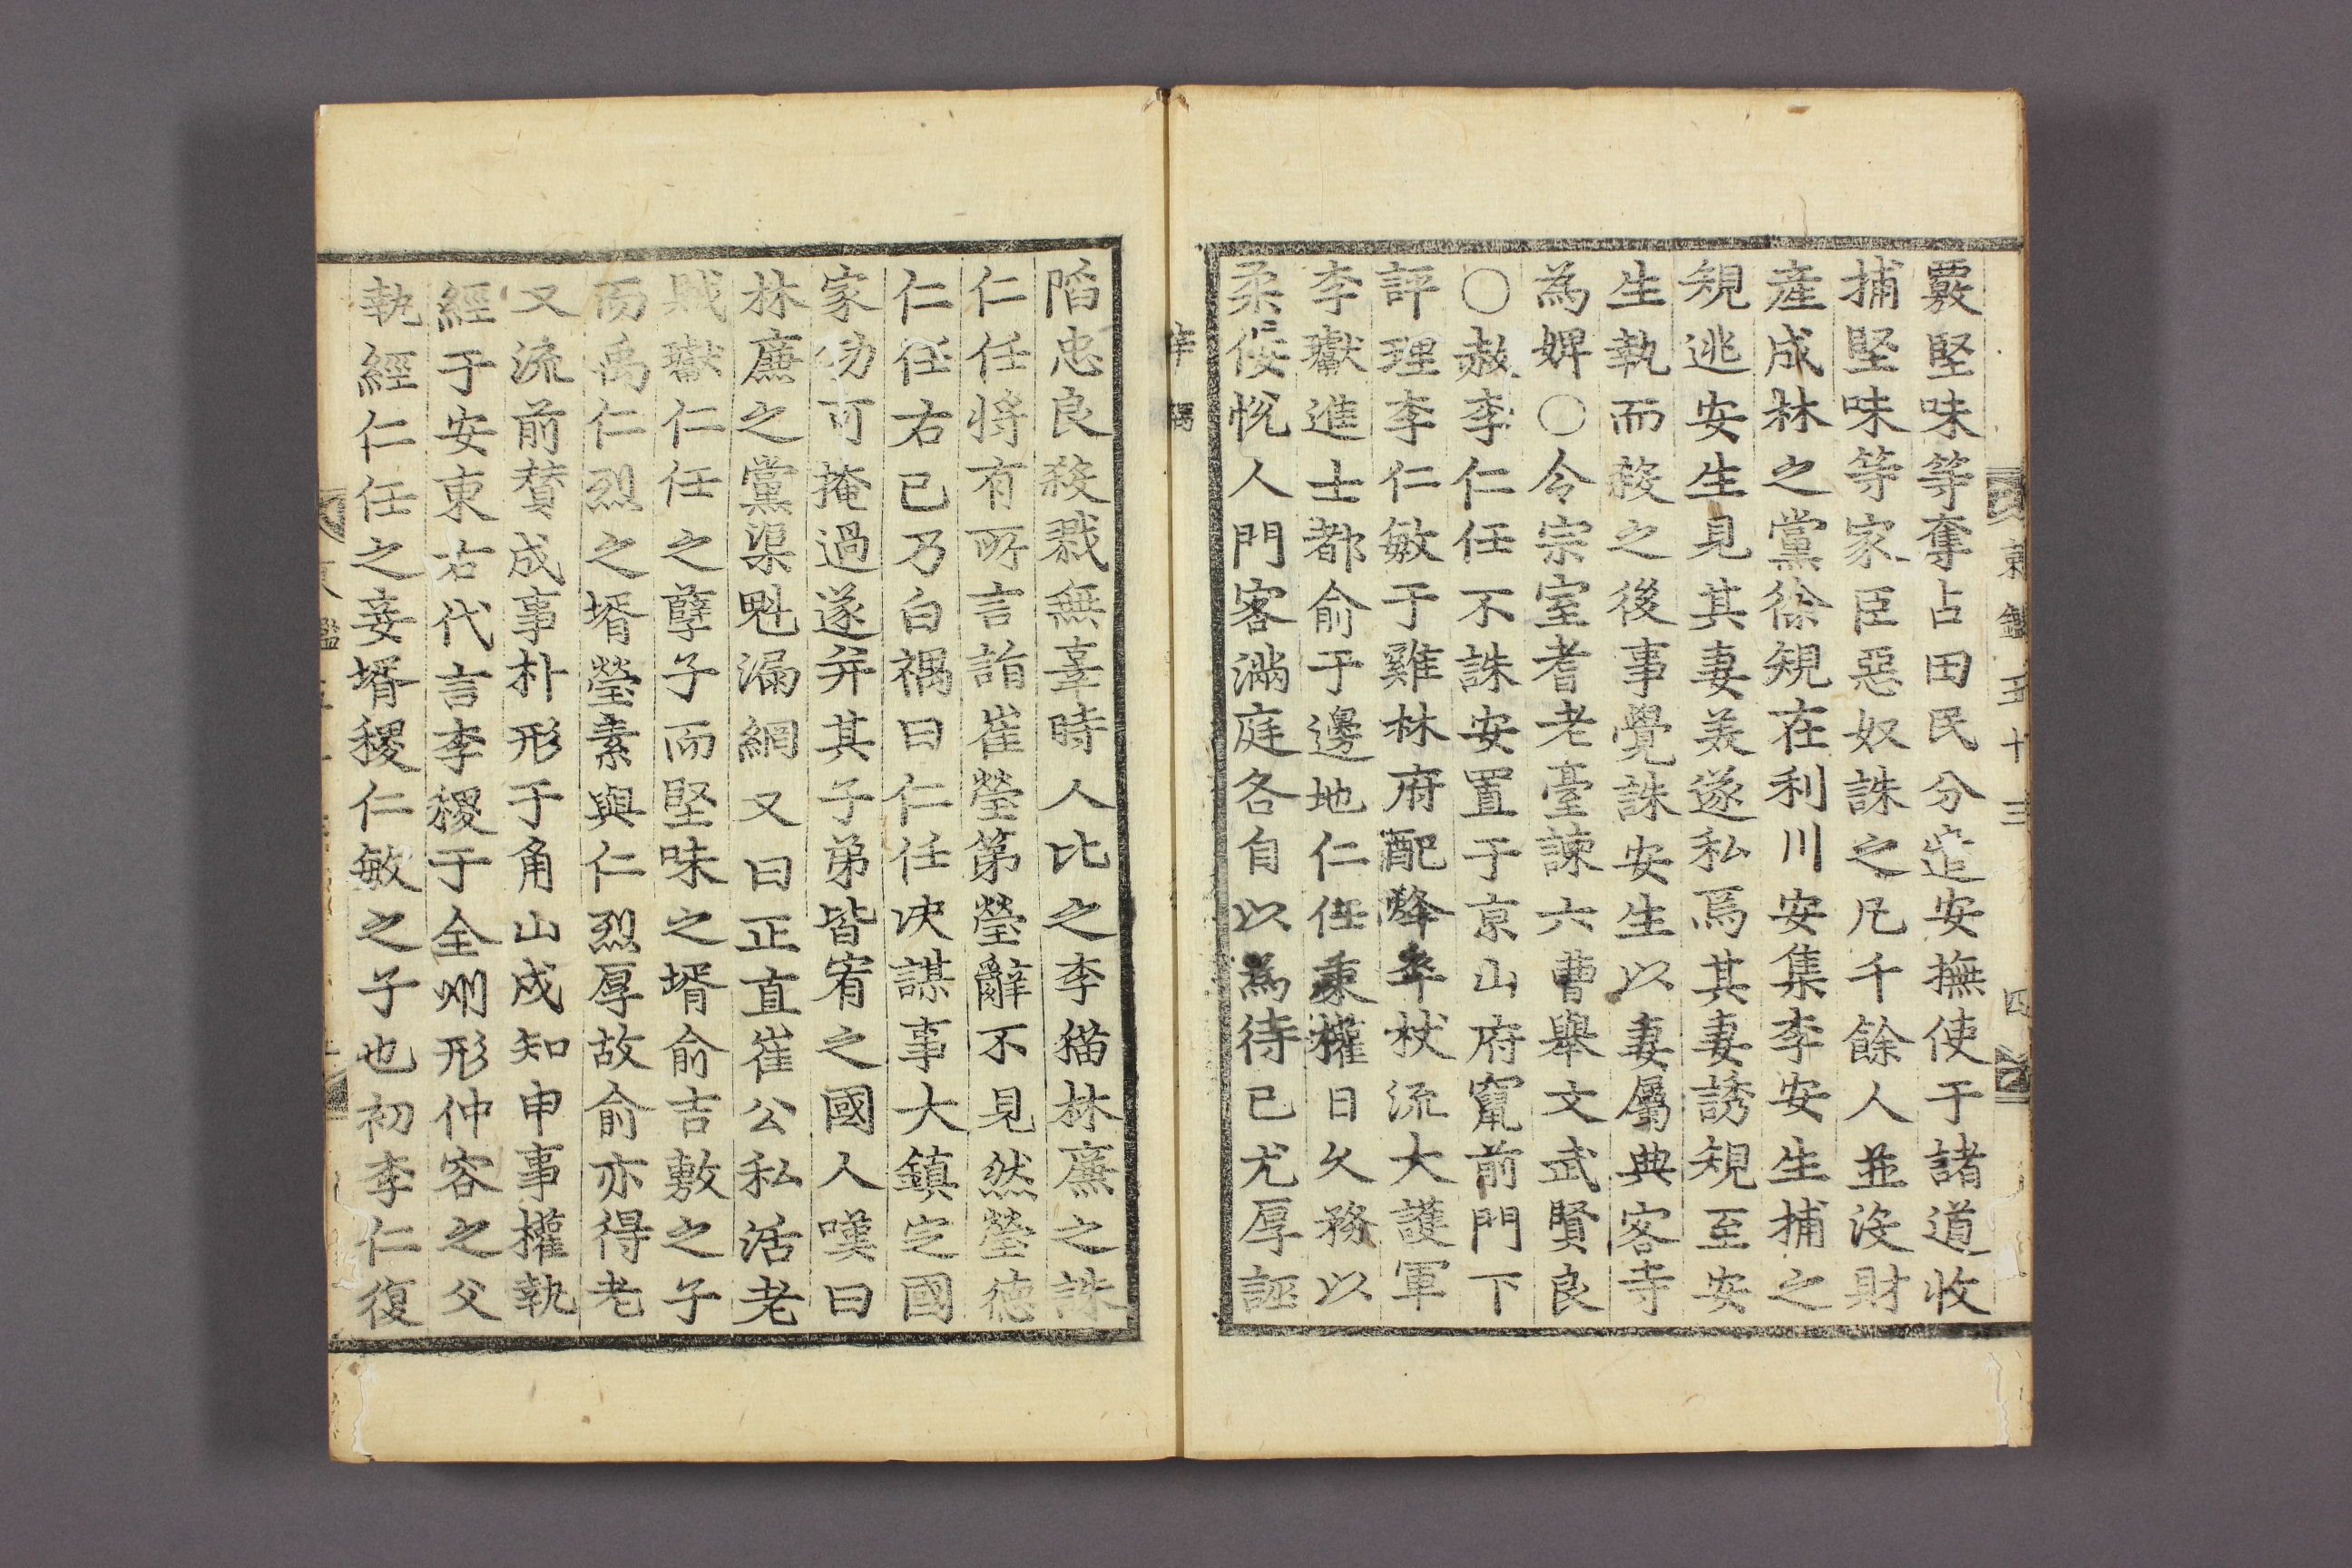 覈堅味等奪占田民分遣安撫使于諸道收
捕堅味等家臣惡奴誅之凡千餘人並没財
産成林之黨徐規在利川安集李安生捕之
規逃安生見其妻美遂私焉其妻誘規至安
生執而殺之後事覺誅安生以妻屬典客寺
為婢○令宗室耆老臺諫六曹舉文武賢良
○赦李仁任不誅安置于京山府竄前門下
評理李仁敏于雞林府配烽卒杖流大護軍
李巘進士都俞于邊地仁任秉權日久務以
柔佞悅人門客滿庭各自以為待已尤厚誣
辛禑
陷忠良殺戮無辜時人比之李猫林廉之誅
仁任將有所言詣崔瑩第瑩辭不見然瑩德
仁任右已乃白禑曰仁任決謀事大鎮定國
家功可掩過遂并其子弟皆宥之國人嘆曰
林廉之黨渠魁漏網又曰正直崔公私活老
賊巘仁任之孽子而堅味之壻俞吉敷之子
而禹仁烈之壻瑩素與仁烈厚故俞亦得老
又流前贊成事朴形于角山戍知申事權執
經于安東右代言李稷于全州形仲容之父
執經仁任之妾壻稷仁敏之子也初李仁復
東鑑五十三
四